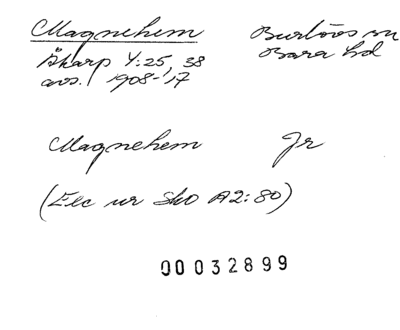 Magnehem Burlövs sn
Åkarp Y:25, 38 Bara hd
avs. 1908-'17
Magnehem Jr
(Exc ur Sko A2:80)
00032899